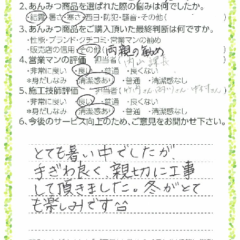 2.あんみつ商品を選ばれた際の悩みは何でしたか。
・結露・暑さ・寒さ・西日・防犯・騒音・その他(　　)
3.あんみつ商品をご購入頂いた最終判断は何ですか。
・性能・ブランド・クチコミ・営業マンの勧め
・販売店の信用・その他( 両親の勧め )
4.営業マンの評価　担当者(
・非常に良い・良い・普通・良くない
※身だしなみ　清潔感あり・普通・清潔感なし
5.施工技術評価　担当者(
・非常に良い・良い・普通・良くない
※身だしなみ　清潔感あり・普通・清潔感なし
6.今後のサービス向上のため、ご意見をお聞かせ下さい。
とても暑い中でしたが
手ぎわ良く、親切に工事
して頂きました。冬がとて
も楽しみです